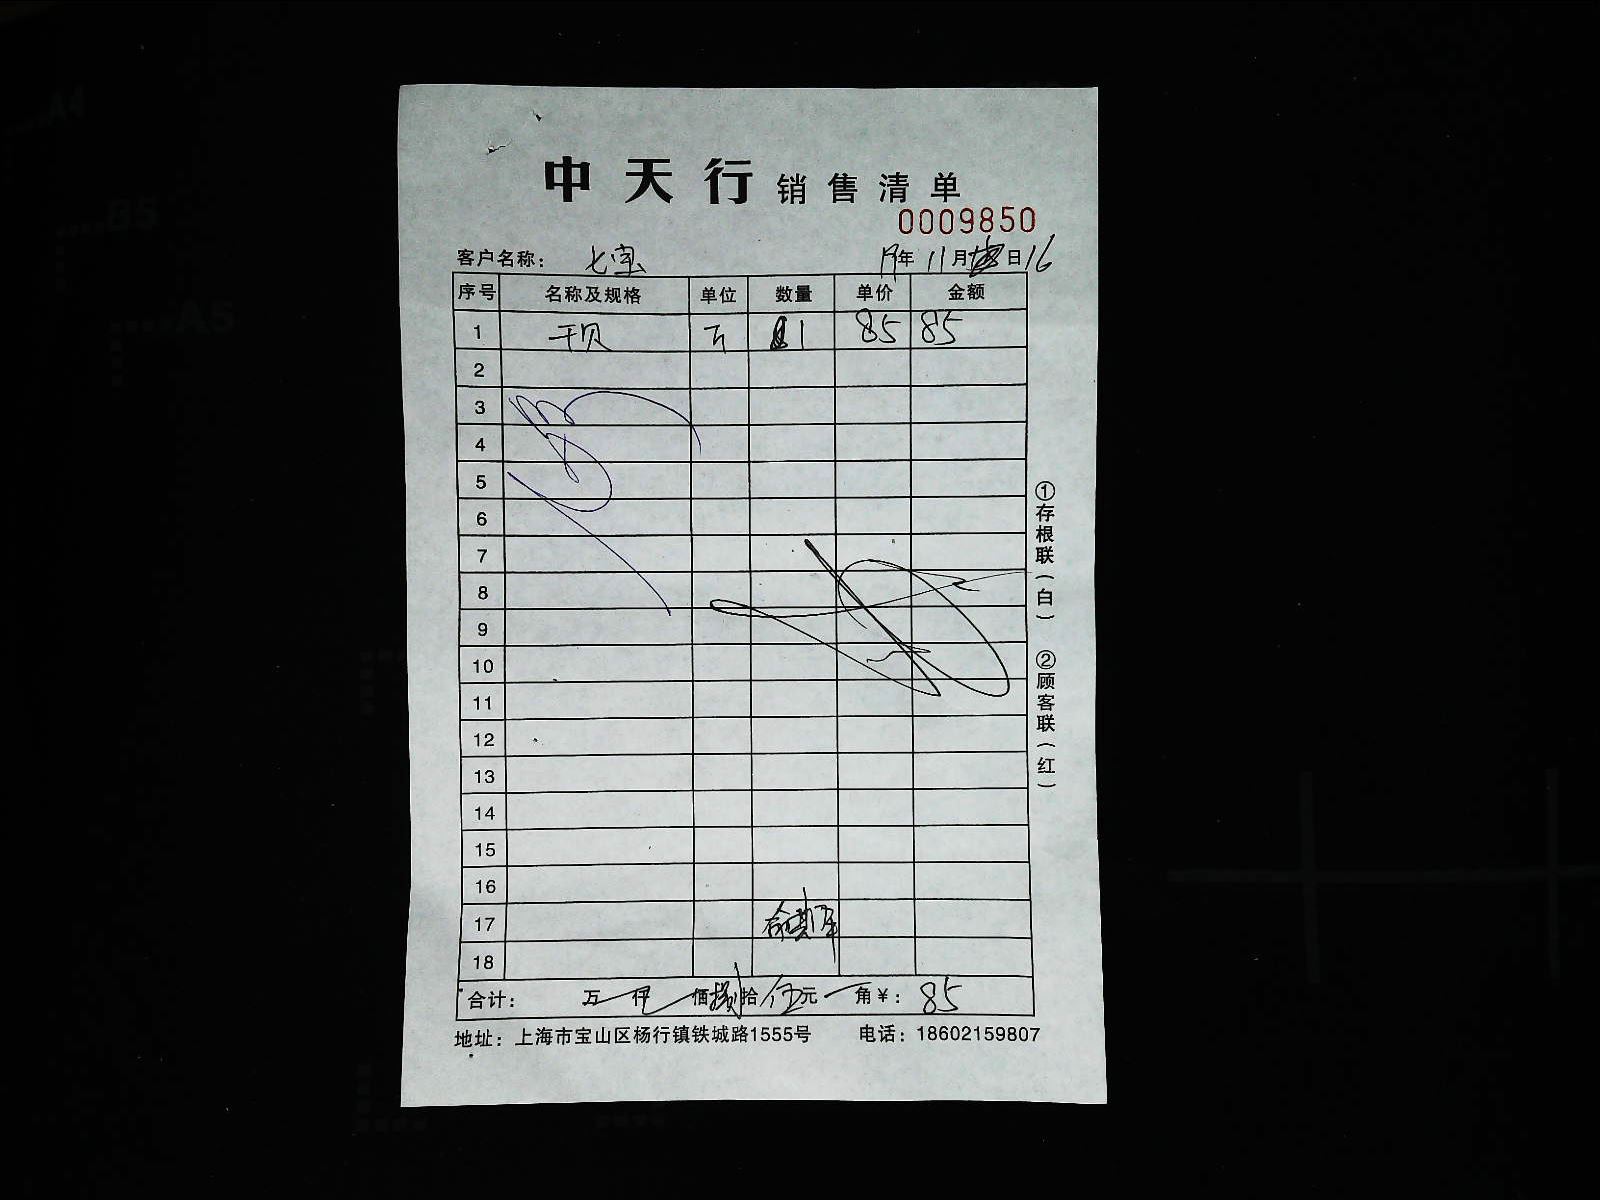 中天行 销售清单
0009850
客户名称： 七宝 19年 11月 日16
序号 名称及规格 单位 数量 单价 金额
1 干贝 斤 1 85 85
2
3
4
5
6
7
8
9
10
11
12
13
14
15
16
17
18
合计： 万 仟 佰 捌拾 伍元 角￥： 85
地址：上海市宝山区杨行镇铁城路1555号 电话：18602159807
①存根联（白） ②顾客联（红）